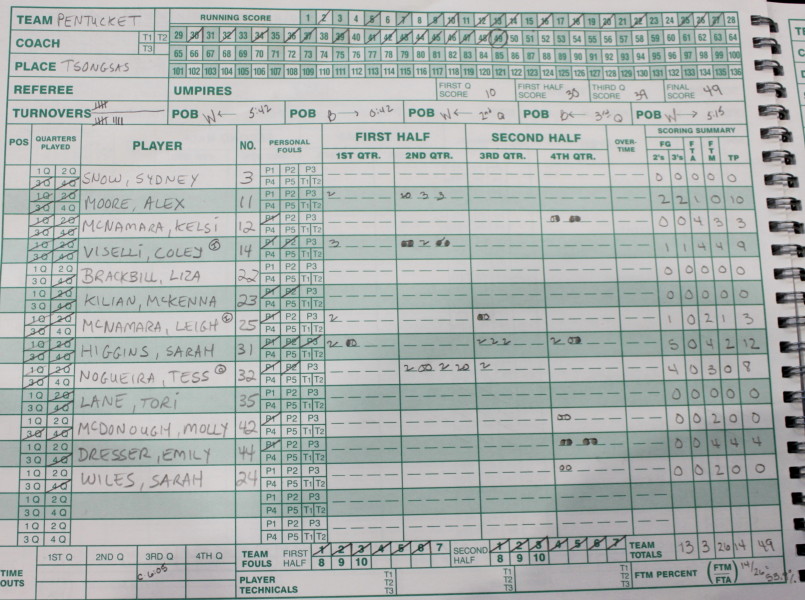 TEAM PENTUCKET
RUNNING SCORE 1 2 3 4 5 6 7 8 9 10 11 12 13 14 15 16 17 18 19 20 21 22 23 24 25 26 27 28
COACH T1 T2 T3
29 30 31 32 33 34 35 36 37 38 39 40 41 42 43 44 45 46 47 48 49 50 51 52 53 54 55 56 57 58 59 60 61 62 63 64
65 66 67 68 69 70 71 72 73 74 75 76 77 78 79 80 81 82 83 84 85 86 87 88 89 90 91 92 93 94 95 96 97 98 99 100
PLACE TSONGSAS
101 102 103 104 105 106 107 108 109 110 111 112 113 114 115 116 117 118 119 120 121 122 123 124 125 126 127 128 129 130 131 132 133 134 135 136
REFEREE UMPIRES FIRST Q SCORE 10 FIRST HALF SCORE 30 THIRD Q SCORE 39 FINAL SCORE 49
TURNOVERS POB W← 5:42 POB B→ 0:42 POB W← 2nd Q POB B← 3rd Q POB W→ 5:15
POS QUARTERS PLAYED PLAYER NO. PERSONAL FOULS FIRST HALF SECOND HALF OVER-TIME SCORING SUMMARY
1ST QTR. 2ND QTR. 3RD QTR. 4TH QTR. FG 2's 3's FTA FTM TP
1Q 2Q 3Q 4Q SNOW, SYDNEY 3 P1 P2 P3 P4 P5 T1 T2 0 0 0 0 0
1Q 2Q 3Q 4Q MOORE, ALEX 11 P1 P2 P3 P4 P5 T1 T2 2 3 3 2 2 1 0 10
1Q 2Q 3Q 4Q MCNAMARA, KELSI 12 P1 P2 P3 P4 P5 T1 T2 0 0 4 3 3
1Q 2Q 3Q 4Q VISELLI, COLEY 14 P1 P2 P3 P4 P5 T1 T2 3 2 1 1 4 4 9
1Q 2Q 3Q 4Q BRACKBILL, LIZA 22 P1 P2 P3 P4 P5 T1 T2 0 0 0 0 0
1Q 2Q 3Q 4Q KILIAN, MCKENNA 23 P1 P2 P3 P4 P5 T1 T2 0 0 0 0 0
1Q 2Q 3Q 4Q MCNAMARA, LEIGH 25 P1 P2 P3 P4 P5 T1 T2 2 1 0 2 1 3
1Q 2Q 3Q 4Q HIGGINS, SARAH 31 P1 P2 P3 P4 P5 T1 T2 2 2 2 2 2 5 0 4 2 12
1Q 2Q 3Q 4Q NOGUEIRA, TESS 32 P1 P2 P3 P4 P5 T1 T2 2 00 2 2 2 4 0 3 0 8
1Q 2Q 3Q 4Q LANE, TORI 35 P1 P2 P3 P4 P5 T1 T2 0 0 0 0 0
1Q 2Q 3Q 4Q MCDONOUGH, MOLLY 42 P1 P2 P3 P4 P5 T1 T2 00 0 0 2 0 0
1Q 2Q 3Q 4Q DRESSER, EMILY 44 P1 P2 P3 P4 P5 T1 T2 0 0 4 4 4
1Q 2Q 3Q 4Q WILES, SARAH 24 P1 P2 P3 P4 P5 T1 T2 00 0 0 2 0 0
1Q 2Q 3Q 4Q P1 P2 P3 P4 P5 T1 T2
1Q 2Q 3Q 4Q P1 P2 P3 P4 P5 T1 T2
TIME OUTS 1ST Q 2ND Q 3RD Q 4TH Q
C 6:05
TEAM FOULS FIRST HALF 1 2 3 4 5 6 7 8 9 10 SECOND HALF 1 2 3 4 5 6 7 8 9 10 TEAM TOTALS 13 3 26 14 49
PLAYER TECHNICALS T1 T2 T3 T1 T2 T3 T1 T2 T3 FTM PERCENT (FTM FTA) 14/26